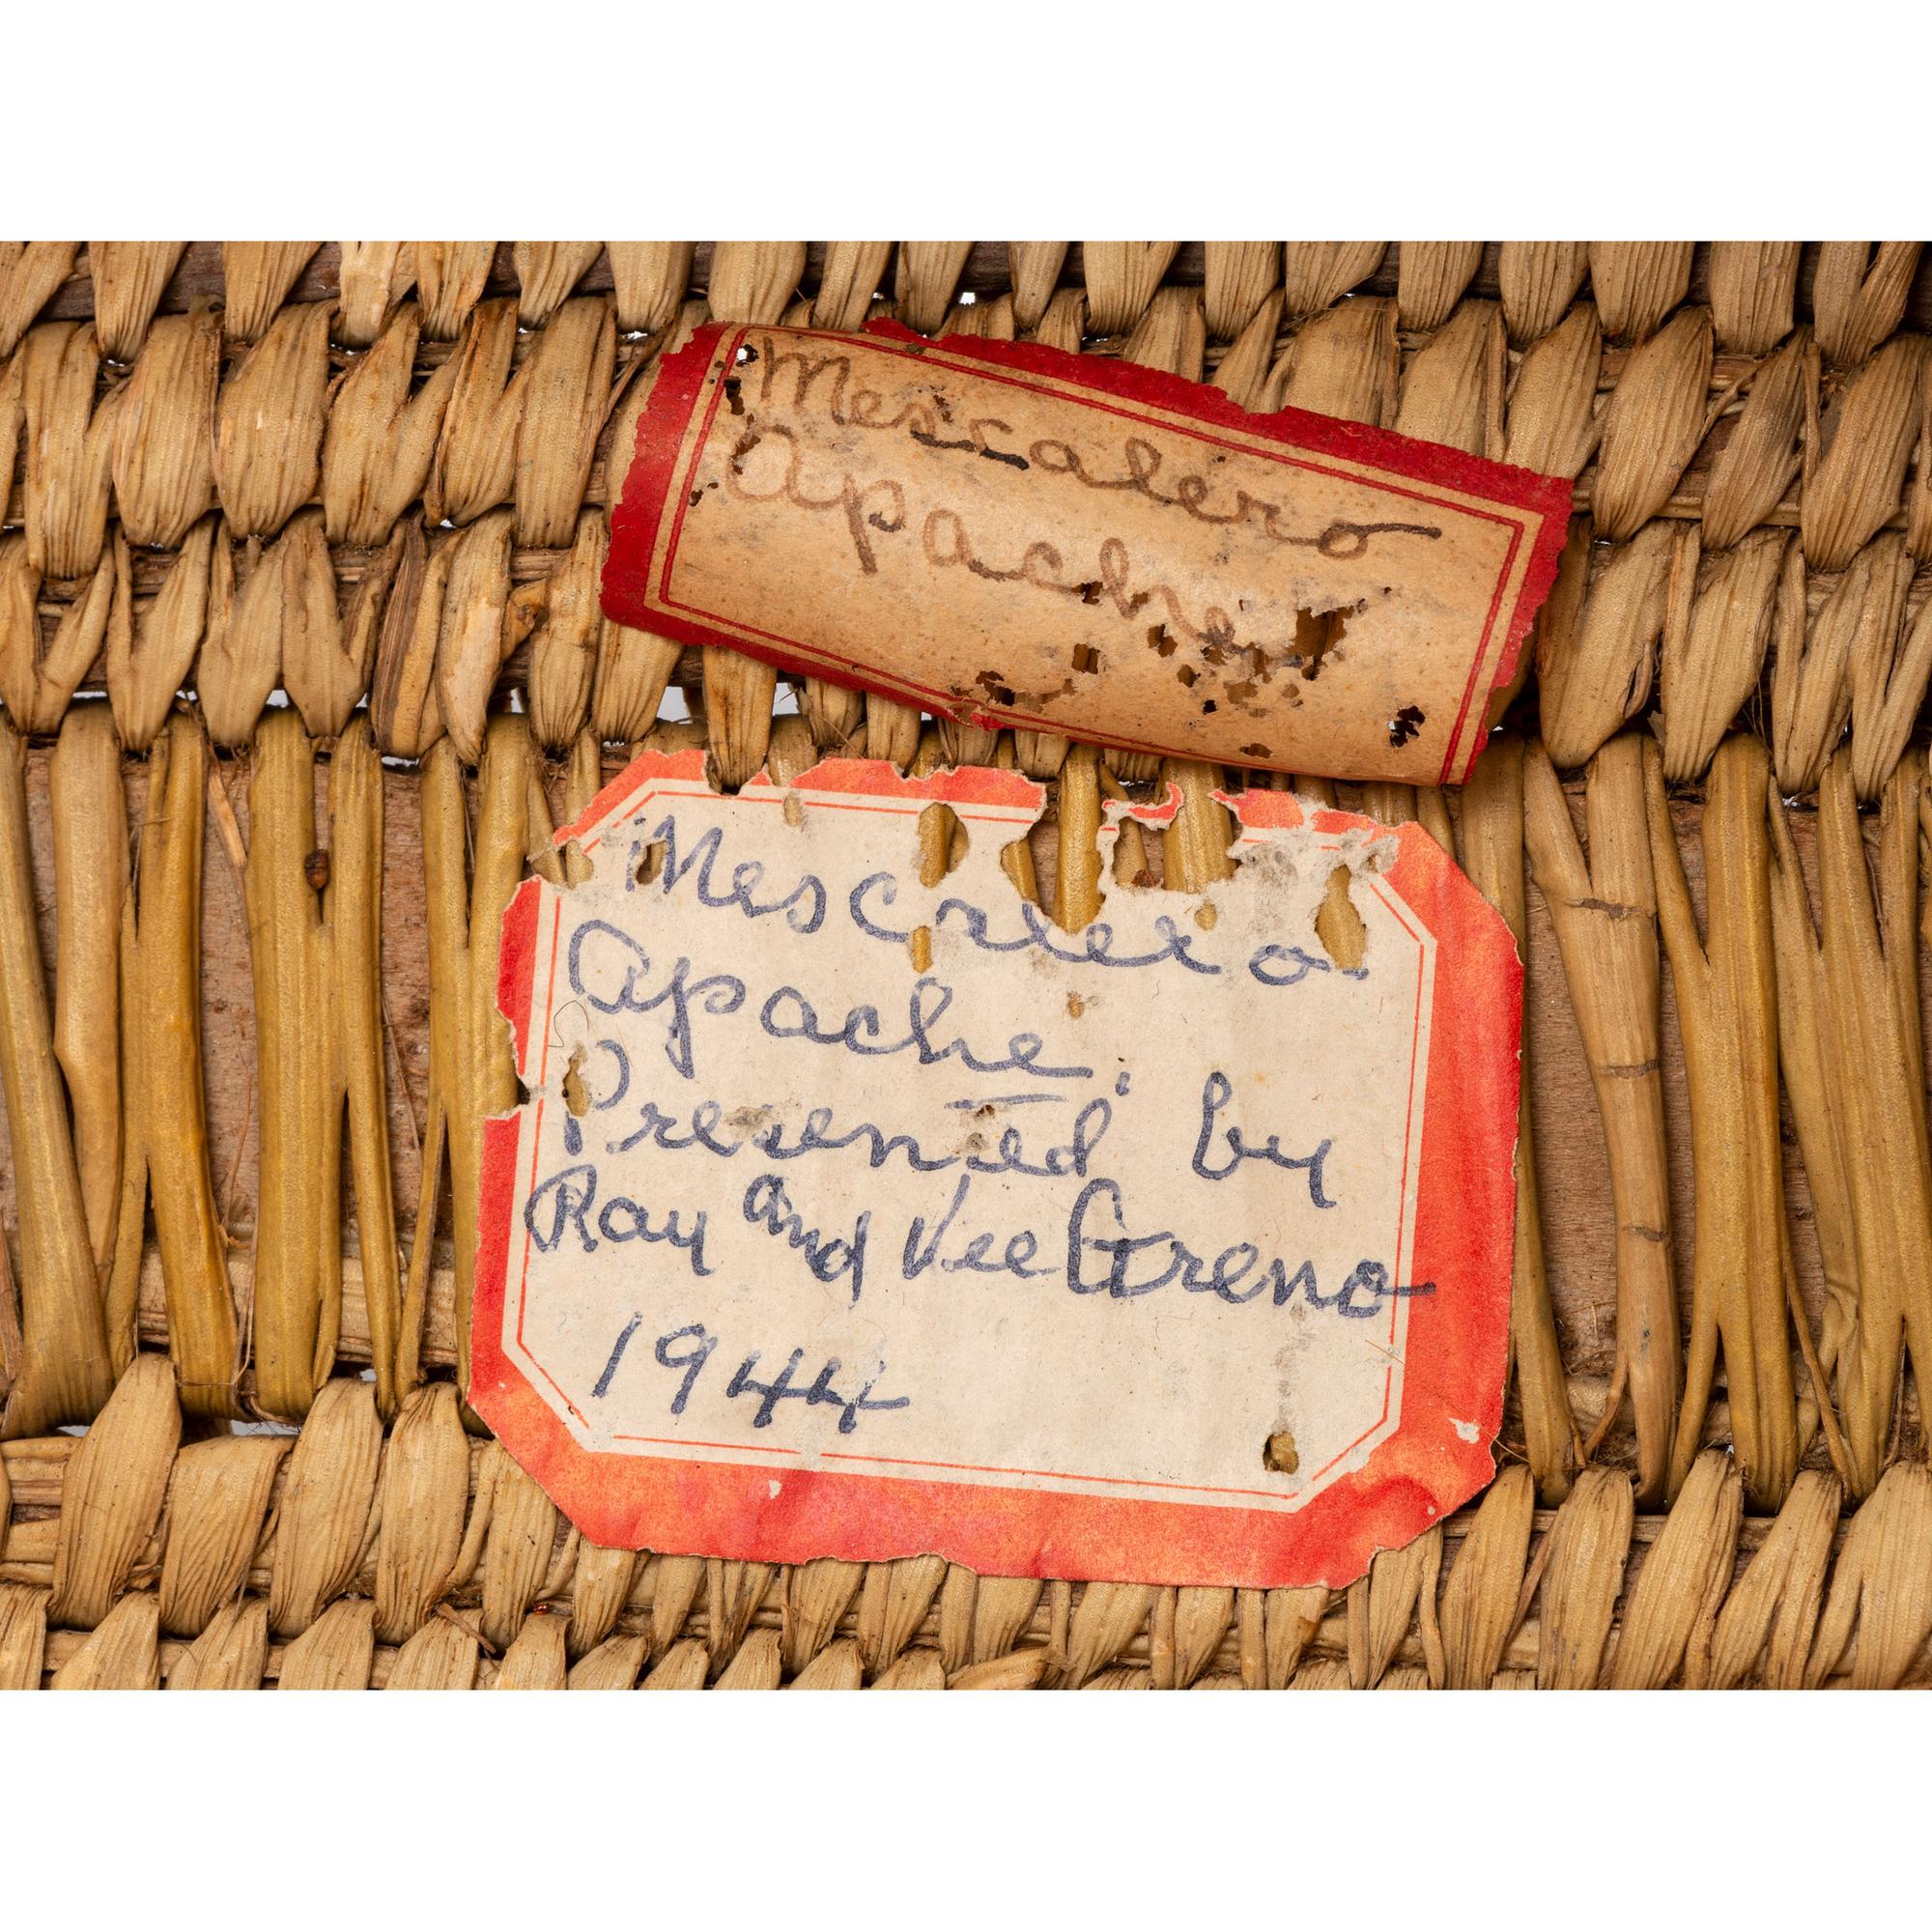 Mescalero
Apache
Mescalero
Apache.
Presented by
Ray and Vee Greno
1944